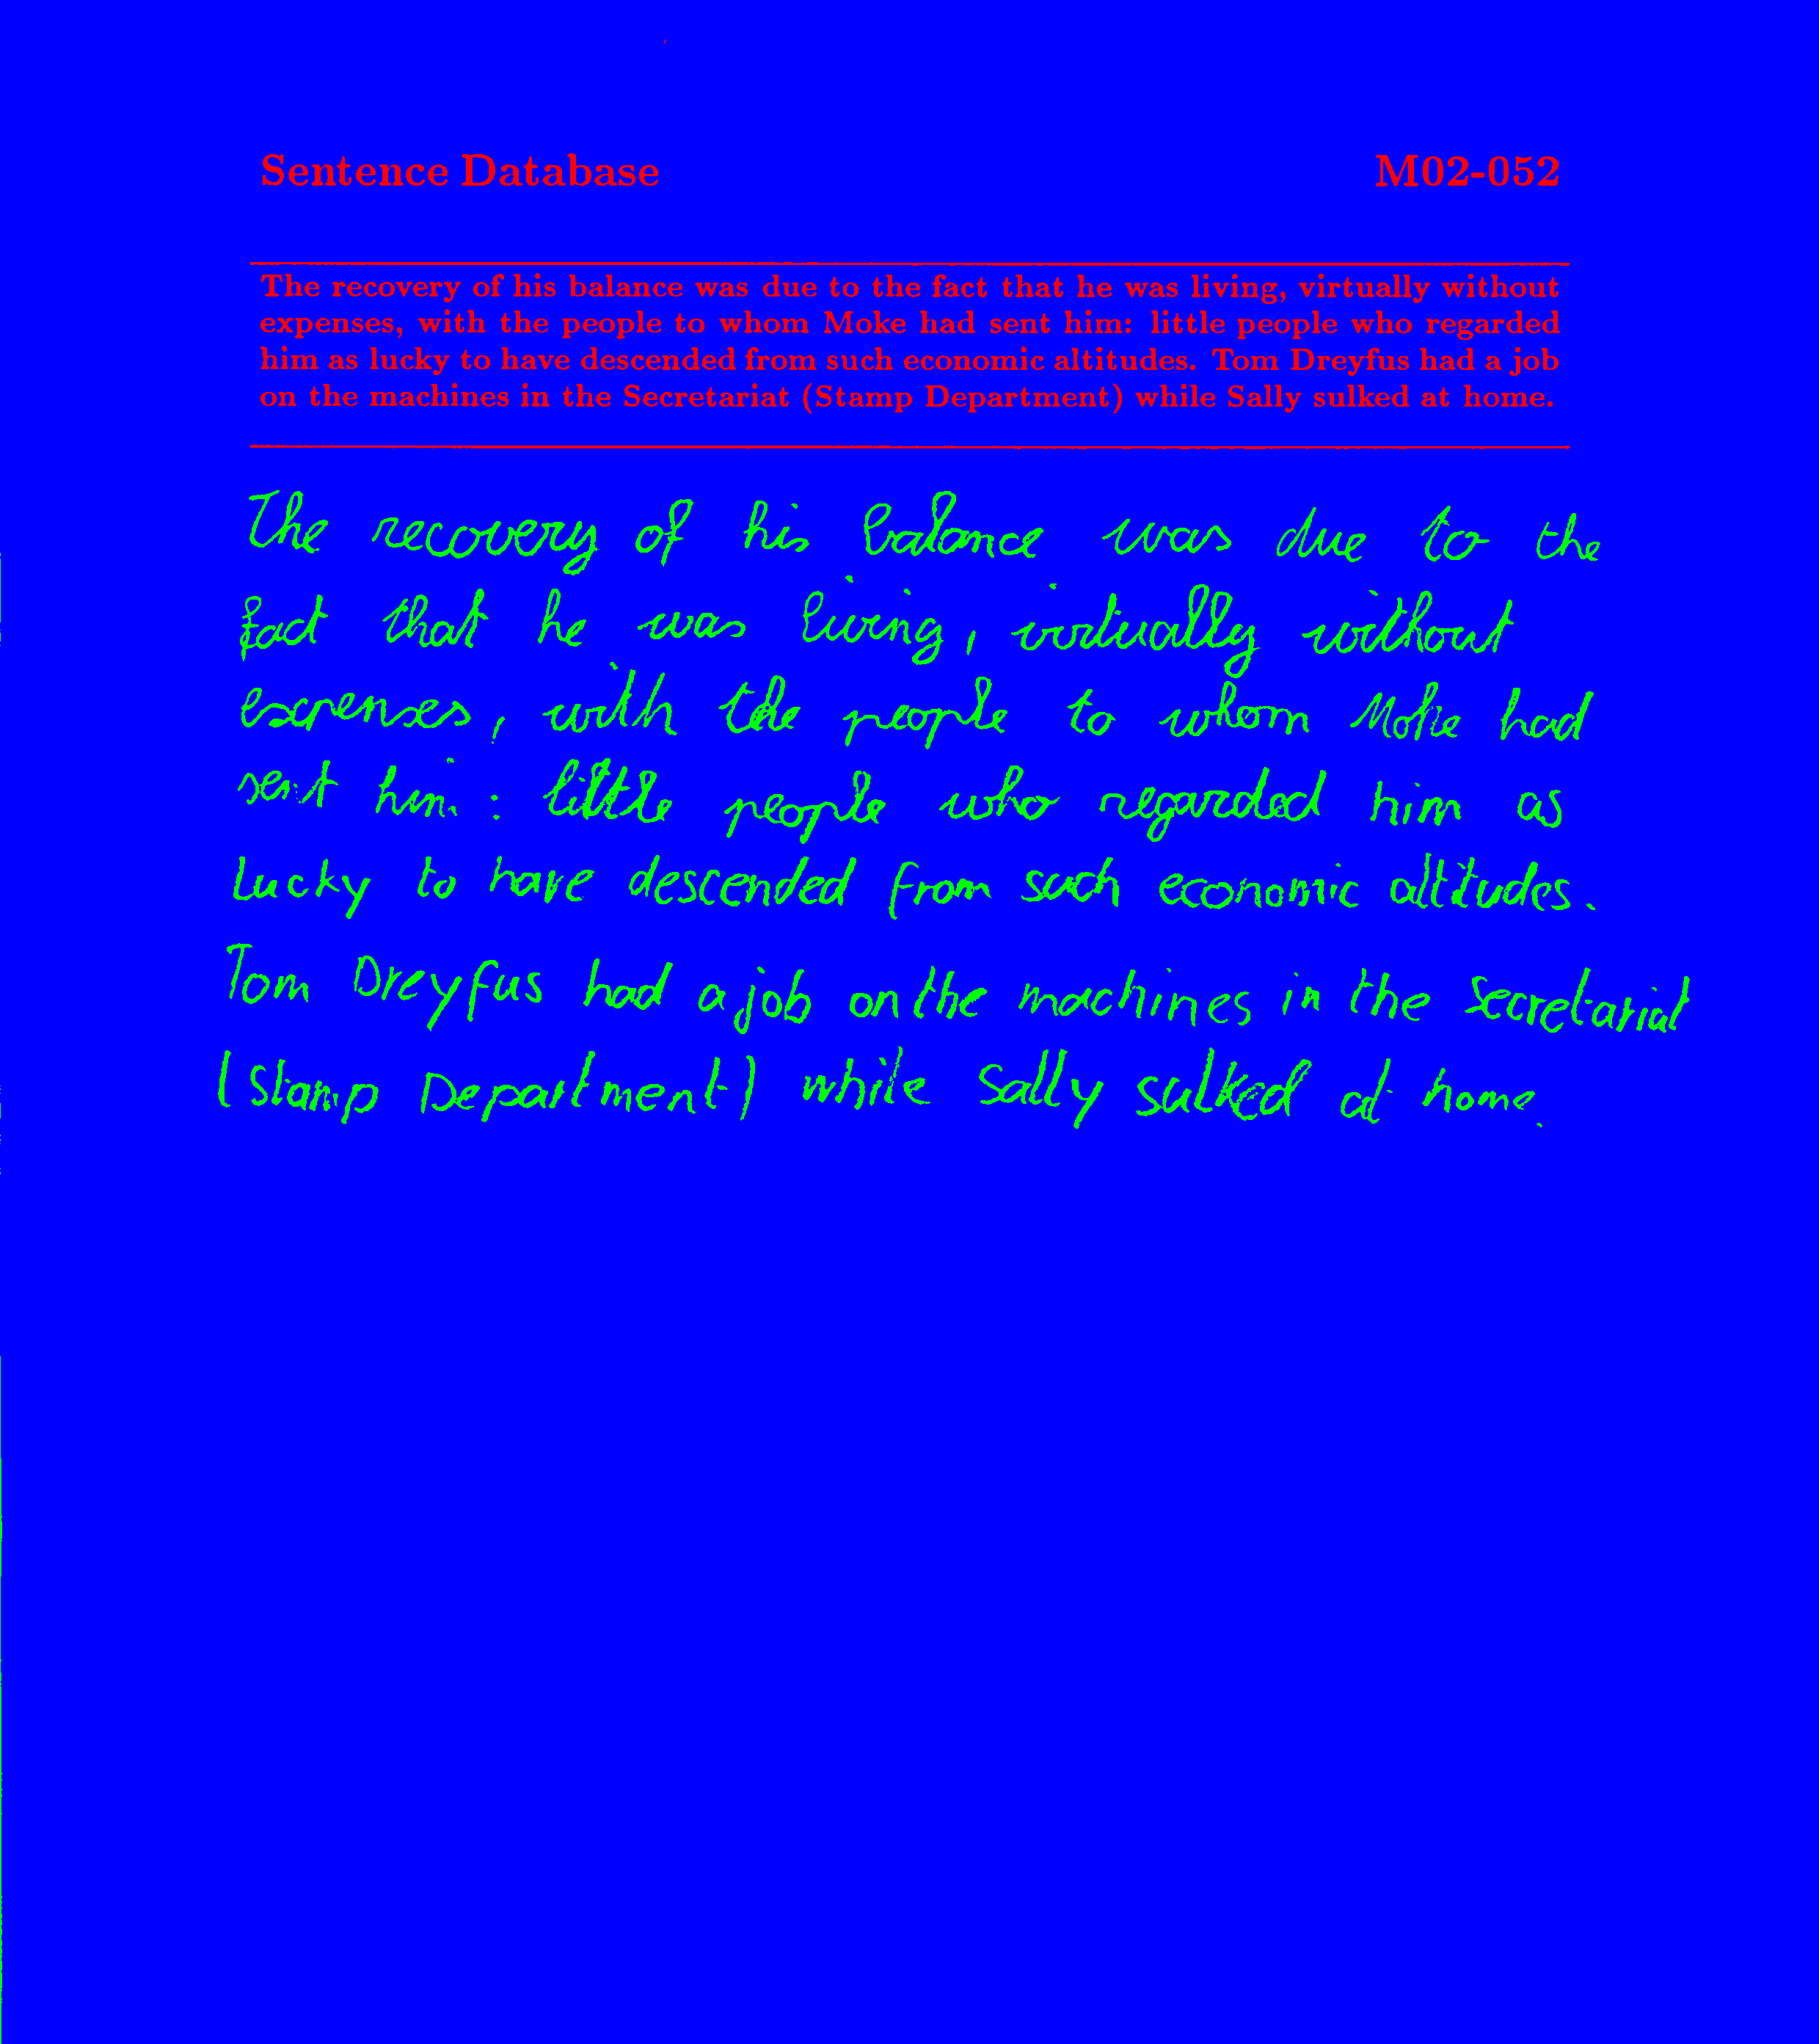 Sentence Database M02-052
The recovery of his balance was due to the fact that he was living, virtually without
expenses, with the people to whom Moke had sent him: little people who regarded
him as lucky to have descended from such economic altitudes. Tom Dreyfus had a job
on the machines in the Secretariat (Stamp Department) while Sally sulked at home.
The recovery of his balance was due to the
fact that he was living, virtually without
expenses, with the people to whom Moke had
sent him: little people who regarded him as
lucky to have descended from such economic altitudes.
Tom Dreyfus had a job on the machines in the Secretariat
(Stamp Department) while Sally sulked at home.